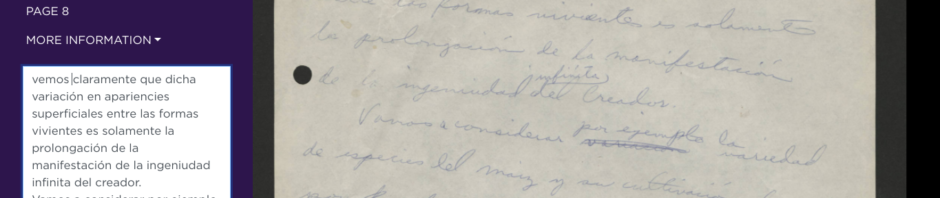 PAGE 8
MORE INFORMATION
vemos claramente que dicha
variación en apariencies
superficiales entre las formas
vivientes es solamente la
prolongación de la
manifestación de la ingeniudad
infinita del creador.
Vamos a considerar por ejemplo
las formas vivientes es solamente
la prolongación de la manifestación
infinita
de la ingeniudad del Creador.
Vamos a considerar por ejemplo la variedad
de especies del maiz y su cultivación